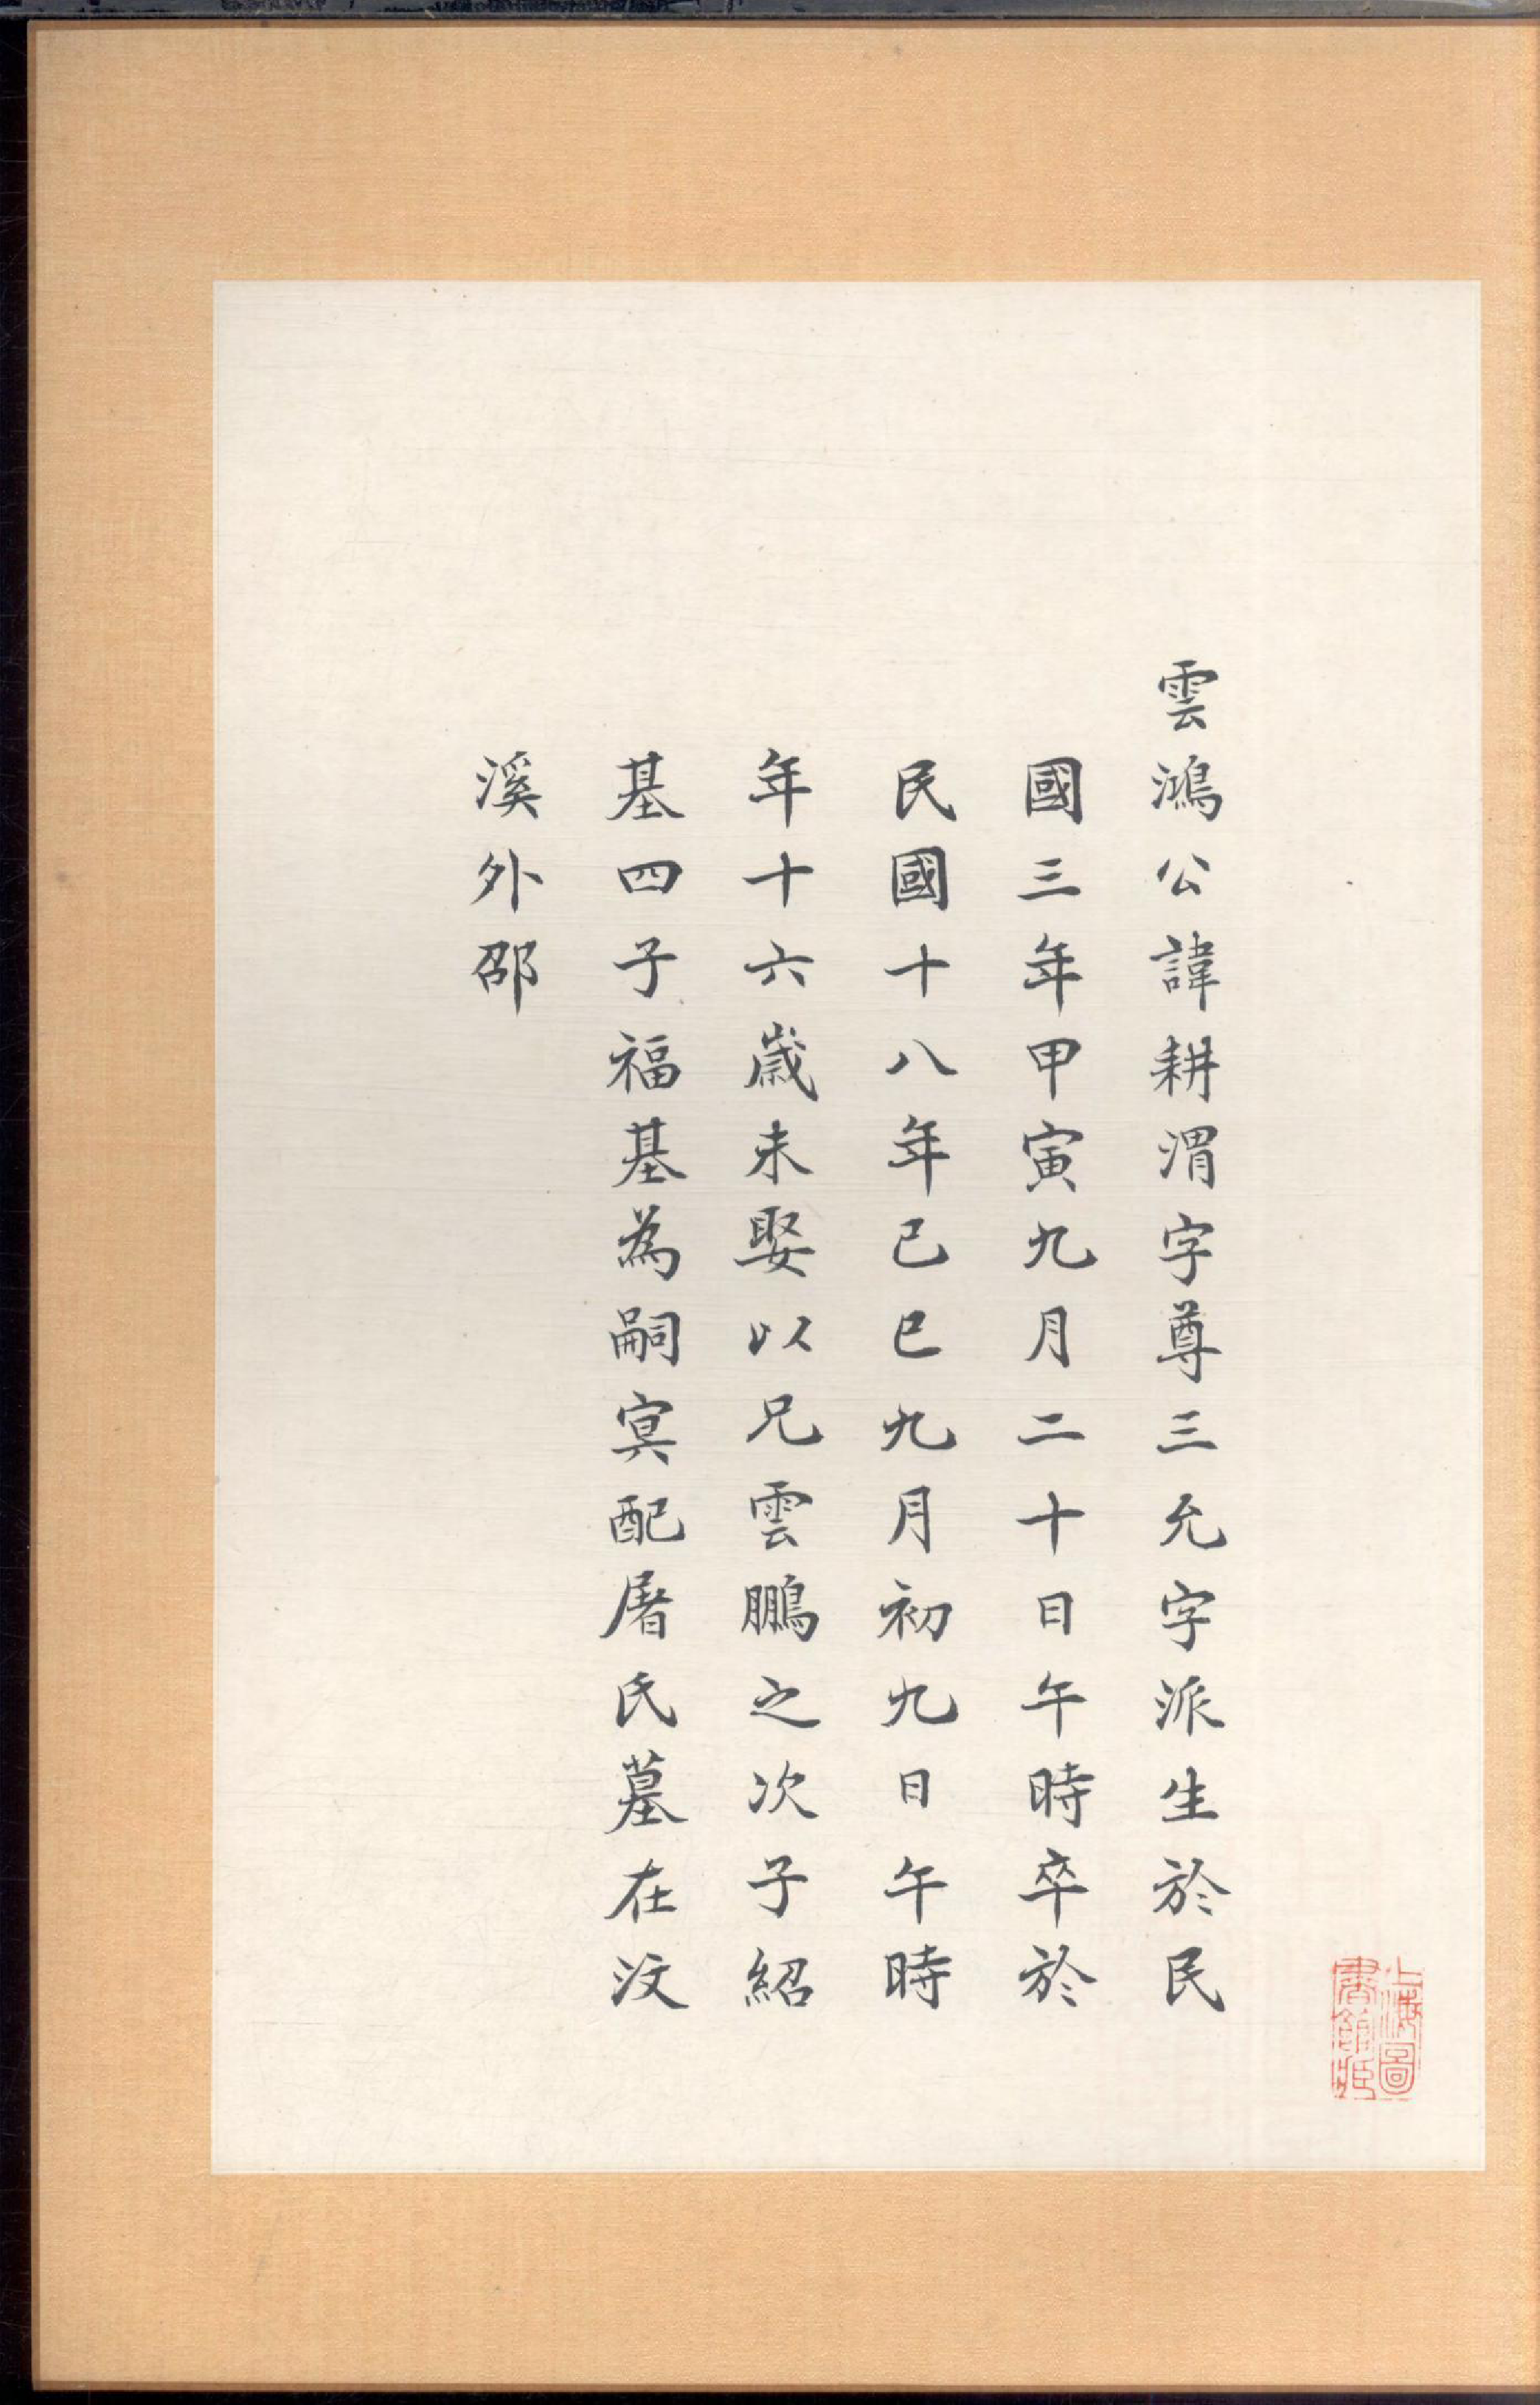 雲鴻公諱耕渭字尊三允字派生於民
國三年甲寅九月二十日午時卒於
民國十八年己巳九月初九日午時
年十六歲未娶以兄雲鵬之次子紹
基四子福基為嗣冥配屠氏墓在汶
溪外邵
上海圖
書館藏